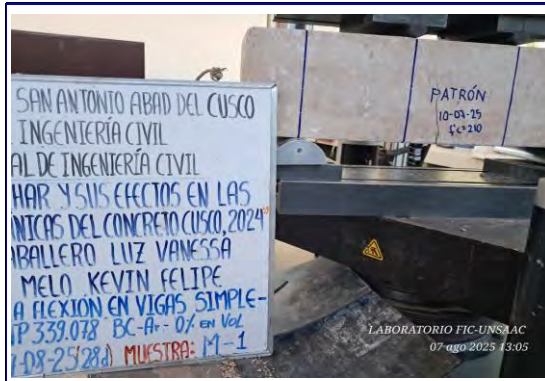 SAN ANTONIO ABAD DEL CUSCO
INGENIERÍA CIVIL
AL DE INGENIERÍA CIVIL
HAR Y SUS EFECTOS EN LAS
NICAS DEL CONCRETO CUSCO, 2024
ABALLERO LUZ VANESSA
MELO KEVIN FELIPE
A FLEXIÓN EN VIGAS SIMPLE-
TP 339.078 BC-Ar- 0% en Vol
-08-25(28d) MUESTRA: M-1
PATRÓN
10-07-25
f'c=210
LABORATORIO FIC-UNSAAC
07 ago 2025 13:05